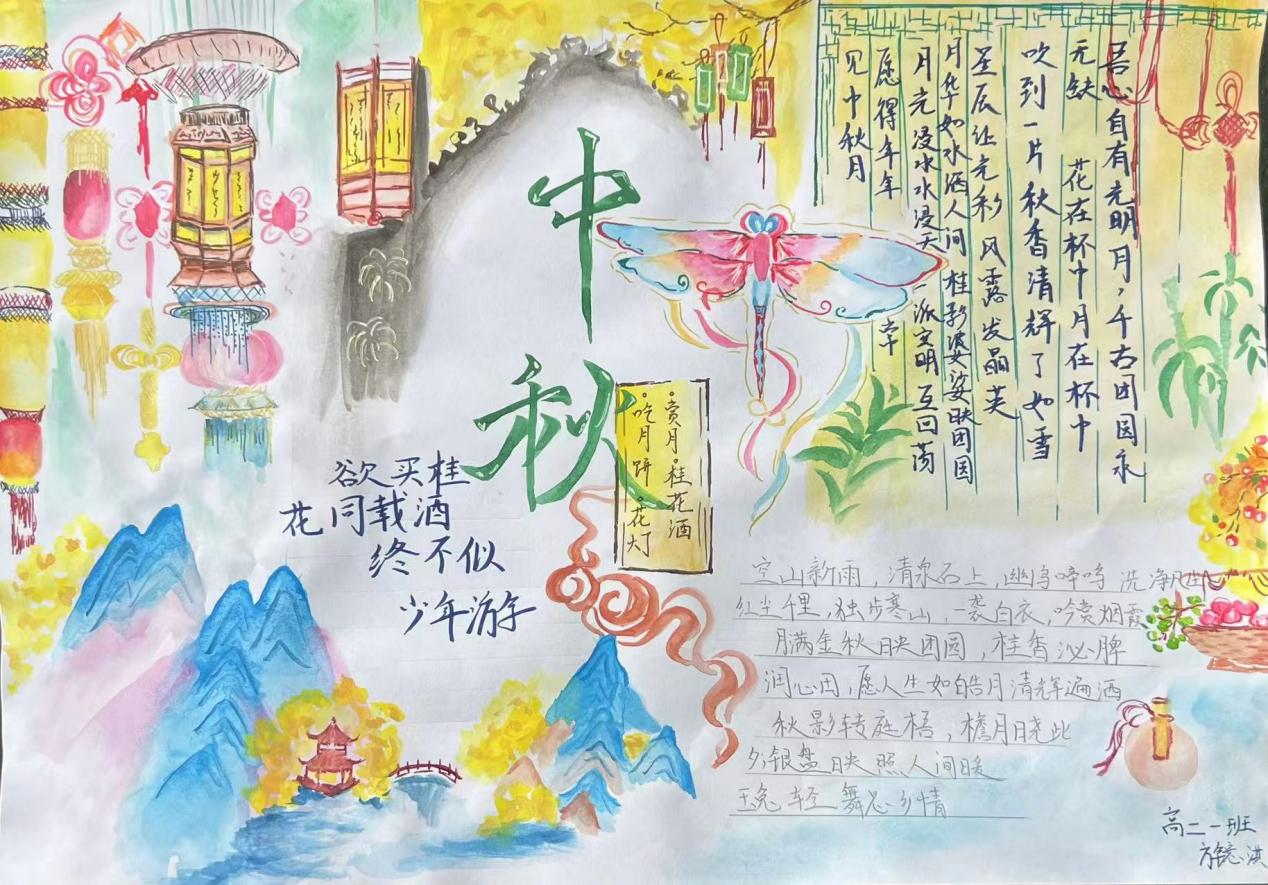 中
秋
吾心自有光明月，千古团圆永
无缺 花在杯中月在杯中
吹到一片秋香清辉了如雪
星辰让光彩 风露发晶英
月华如水洒人间 桂影婆娑映团圆
月光浸水水浸天 派空明互回荡
愿得年年 常
见中秋月
·赏月·桂花酒
·吃月饼·花灯
欲买桂
花同载酒
终不似
少年游
空山新雨，清泉石上，幽鸟啼鸣 洗净凡
红尘千里，独步寒山，一袭白衣，吟赏烟霞
月满金秋映团圆，桂香沁脾
润心田，愿人生如皓月清辉遍洒
秋影转庭梧，檐月晓此
夕银盘映照人间暖
玉兔轻舞总乡情
高二一班
洪